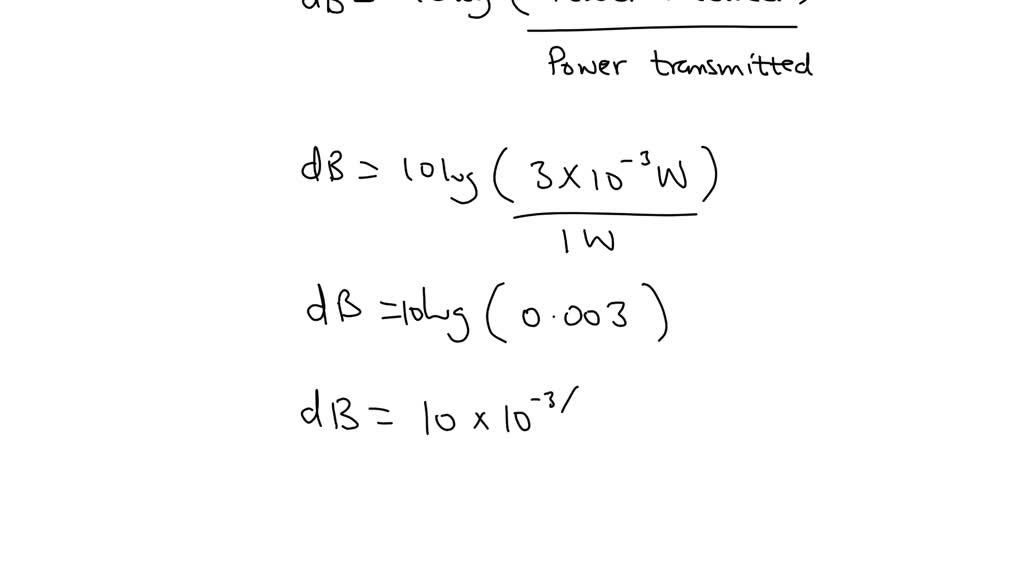 dB = 10 log (
Power transmitted
dB = 10 log ( 3 × 10⁻³ W )
1 W
dB = 10 log ( 0.003 )
dB = 10 × 10⁻³/